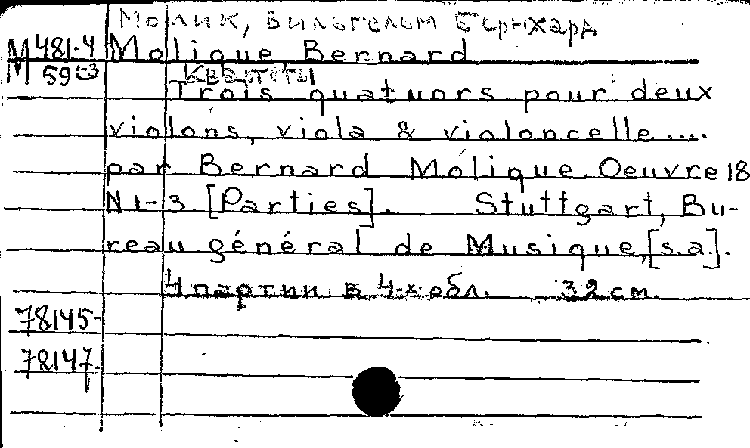 Молик, Вильгельм Бернхард
М 481-4 Molique Bernard
М 59-3 Квартеты
Trois quatuors pour deux
violons, viola & violoncelle ....
par Bernard Molique. Oeuvre 18
N 1-3 [Parties]. Stuttgart, Bu-
reau général de Musique, [s.a.].
4 партии в 4-х обл. 32 см.
78145-
78147.